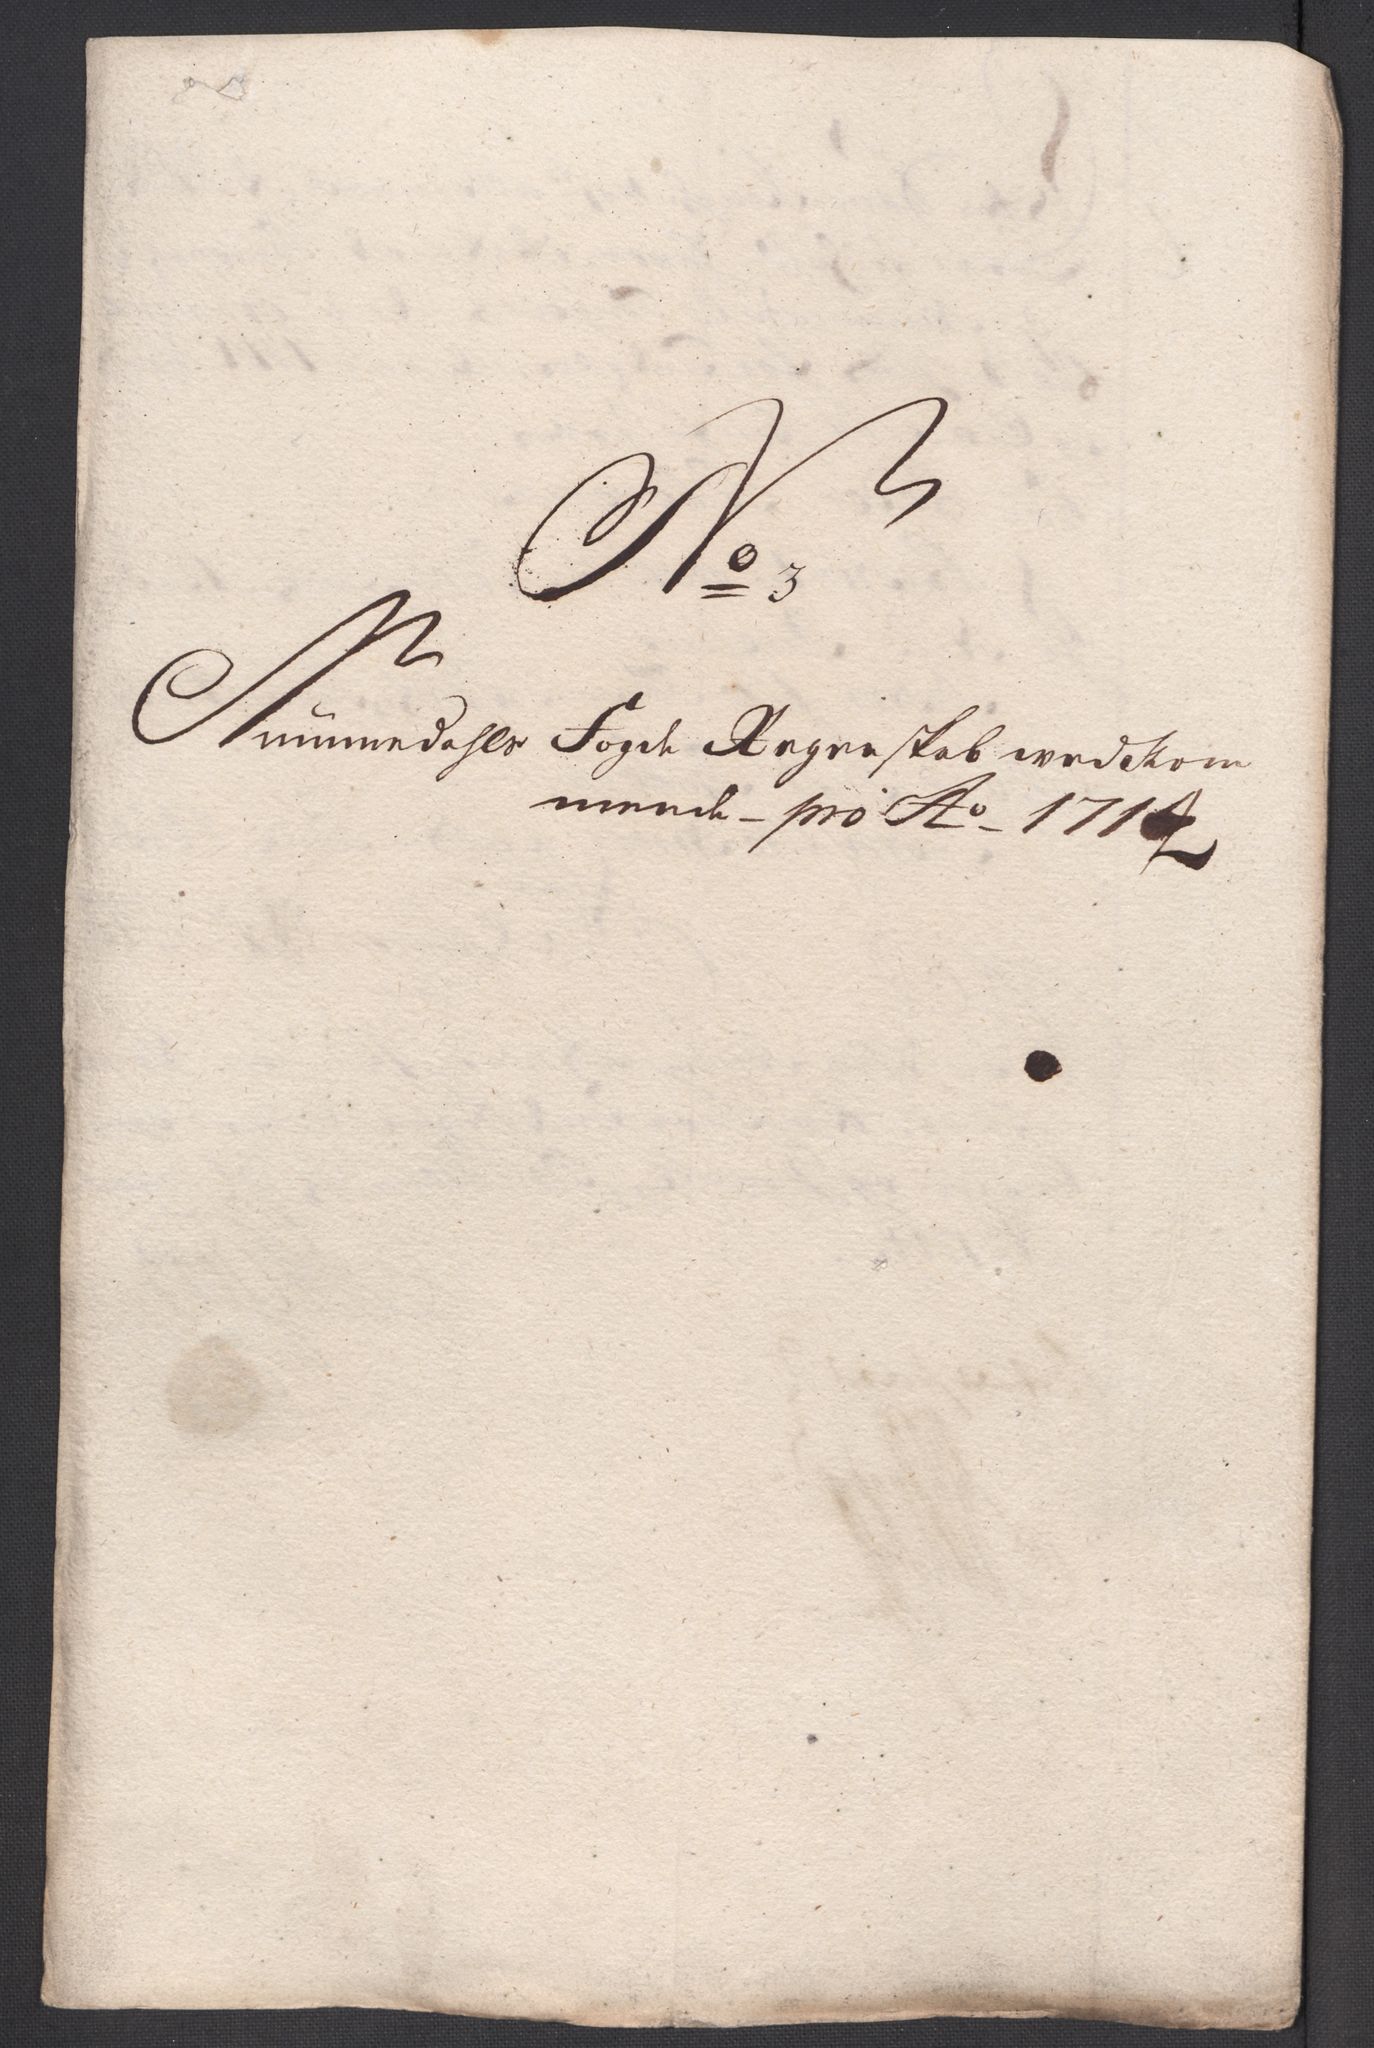 No 3
Nummedahls Fogde Regenskab wedkom
mende - pro Ao - 1714